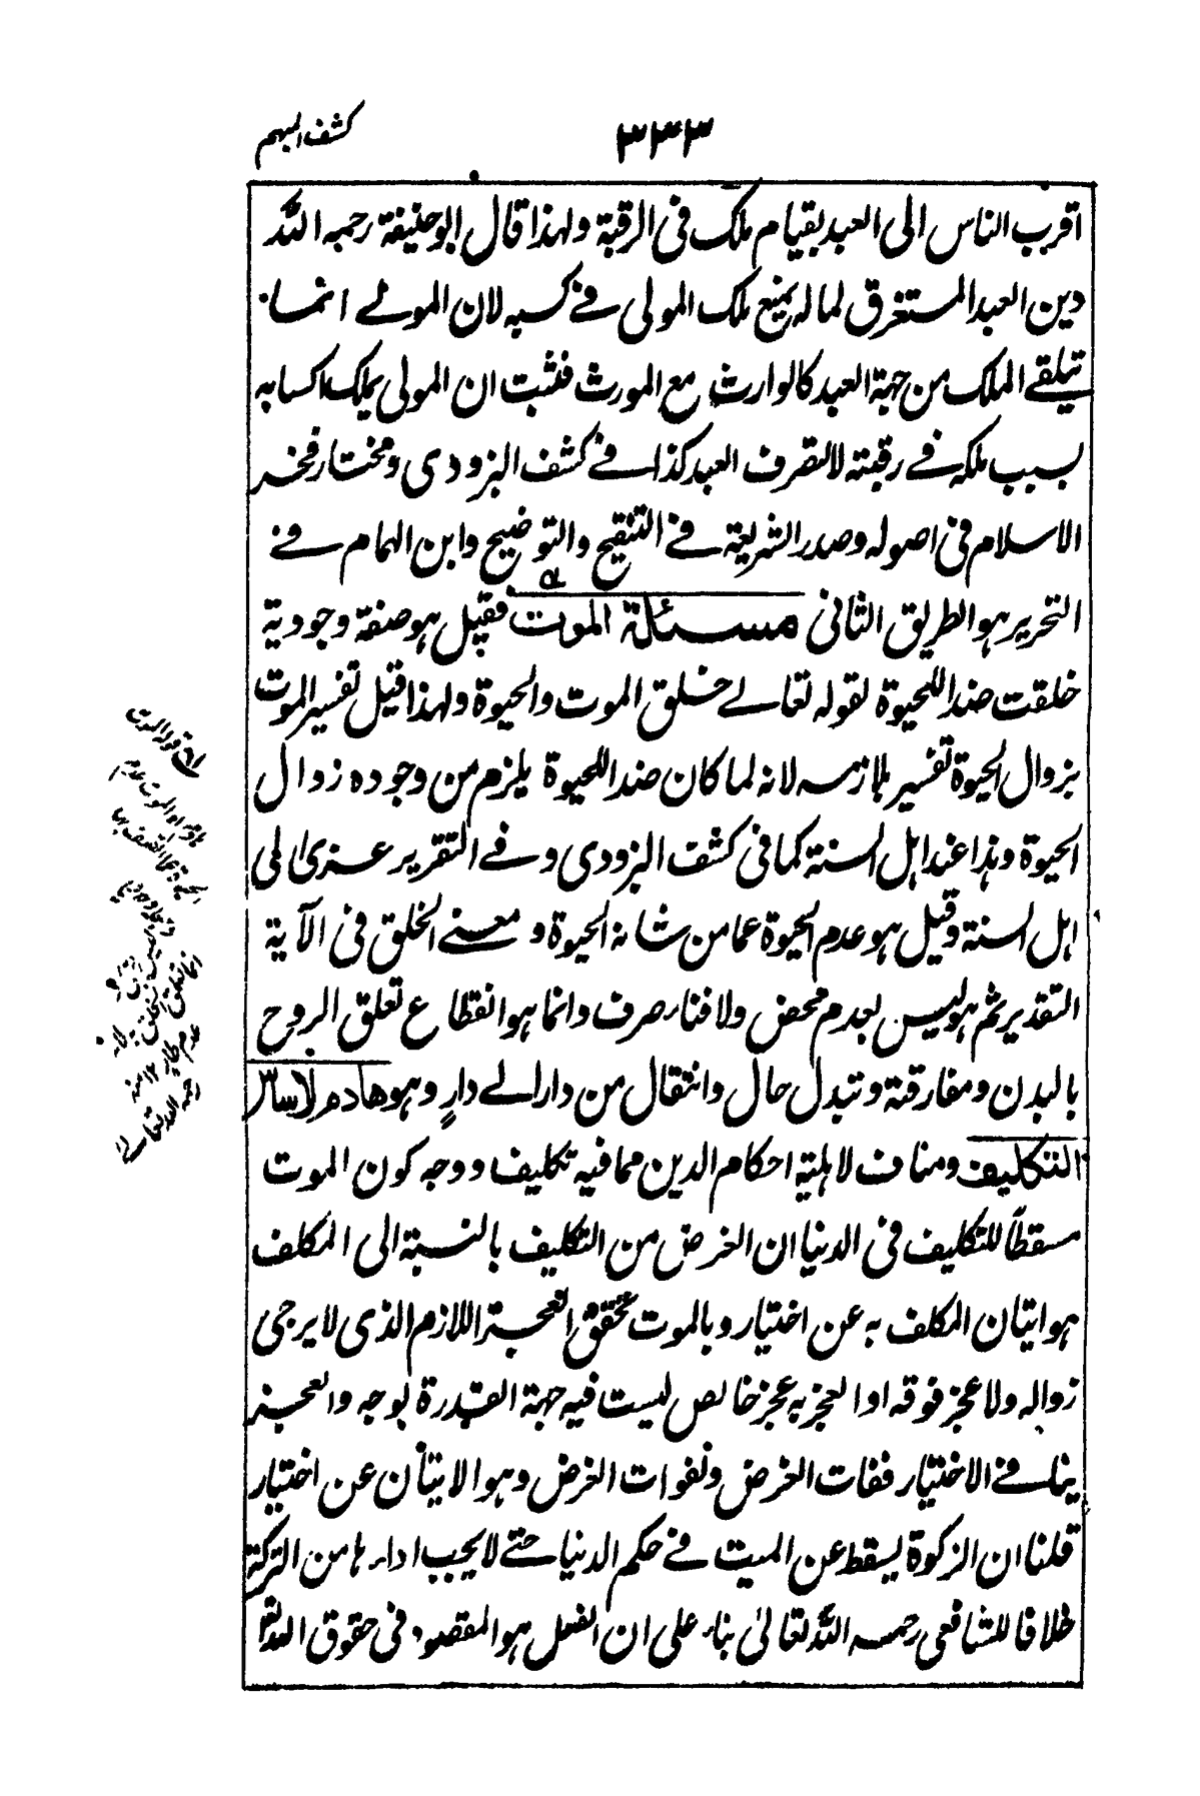 كشف المبهم
٣٣٣
اقرب الناس الى العبد بقيام ملك فى الرقبة ولهذا قال ابو حنيفة رحمه الله
دين العبد المستغرق لماله يمنع ملك المولى فے كسبه لان المولے انما
يتلقے الملك من جهة العبد كالوارث مع المورث فثبت ان المولى يملك اكسابه
بسبب ملكه فے رقبته لالتصرف العبد كذا فے كشف البزودى ومختار فخر
الاسلام فى اصوله وصدر الشريعة فے التنقيح والتوضيح وابن الهمام فے
التحرير هو الطريق الثانى مسئلة الموت فقيل هو صفة وجودية
خلقت ضدا للحيوة لقوله تعالے خلق الموت والحيوة ولهذا قيل تفسير الموت
بزوال الحيوة تفسير بلازمه لانه لما كان ضدا للحيوة يلزم من وجوده زوال
الحيوة وهذا عند اهل السنة كما فى كشف البزودى وفے التقرير عزى الى
اهل السنة وقيل هو عدم الحيوة عما من شانه الحيوة ومعنے الخلق فى الآية
التقدير ثم هو ليس بعدم محض ولا فناء صرف وانما هو انقطاع تعلق الروح
بالبدن ومفارقة وتبدل حال وانتقال من دار الے دارٍ وهو هادم لاساس
التكليف ومناف لاهلية احكام الدين مما فيه تكليف ووجه كون الموت
مسقطاً للتكليف فى الدنيا ان الغرض من التكليف بالنسبة الى المكلف
هو اتيان المكلف به عن اختيار وبالموت تحقق العجز اللازم الذى لا يرجى
زواله ولا عجز فوقه اذا العجز به عجز خالص ليست فيه جهة القدرة بوجه والعجز
ينافے الاختيار ففات الغرض ولفوات الغرض وهو الاتيان عن اختيار
قلنا ان الزكوة يسقط عن الميت فے حكم الدنيا حتے لا يجب اداءها من التركة
خلافا للشافعى رحمه الله تعالىٰ بناء على ان الفعل هو المقصود فى حقوق الله تع
قوله الموت